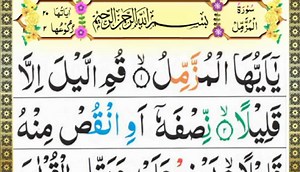 سُورَةُ الْمُزَّمِّلِ
بِسْمِ اللهِ الرَّحْمٰنِ الرَّحِيْمِ
اٰيَاتُهَا ٢٠
رُكُوْعُهَا ٢
يٰۤاَيُّهَا الْمُزَّمِّلُ ۙ﴿١﴾ قُمِ الَّيْلَ اِلَّا
قَلِيْلًا ۙ﴿٢﴾ نِّصْفَهٗۤ اَوِ انْقُصْ مِنْهُ